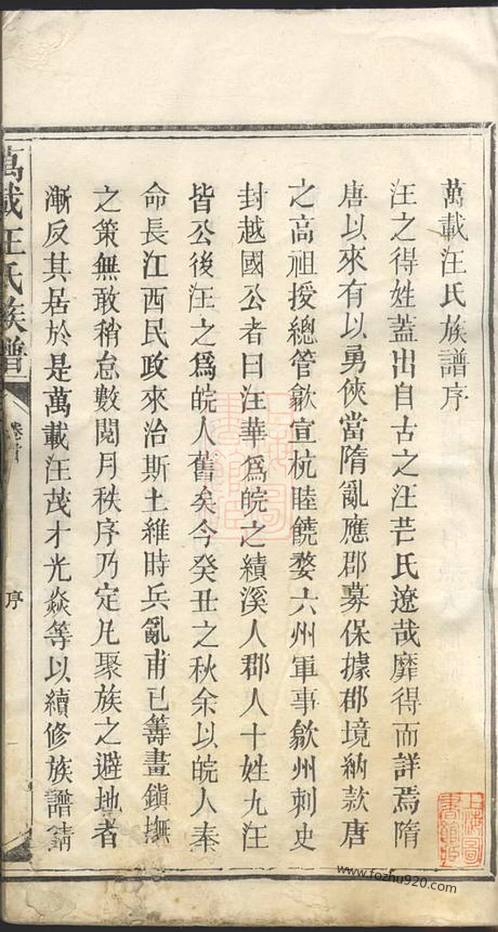 萬載汪氏族譜序
汪之得姓蓋出自古之汪芒氏遼哉靡得而詳焉隋
唐以來有以勇俠當隋亂應郡募保據郡境納款唐
之高祖授總管歙宣杭睦饒婺六州軍事歙州刺史
封越國公者曰汪華爲皖之績溪人郡人十姓九汪
皆公後汪之爲皖人舊矣今癸丑之秋余以皖人奉
命長江西民政來治斯土維時兵亂甫已籌畫鎮撫
之策無敢稍怠數閱月秩序乃定凡聚族之避地者
漸反其居於是萬載汪茂才光焱等以續修族譜請
萬載汪氏族譜
卷首
序
上海圖書館藏
www.fozhu920.com